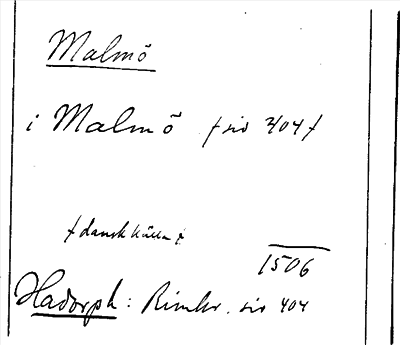 Malmö
i Malmö /sid 404/
/dansk källa/
1506
Hadorph: Rimkr. sid 404